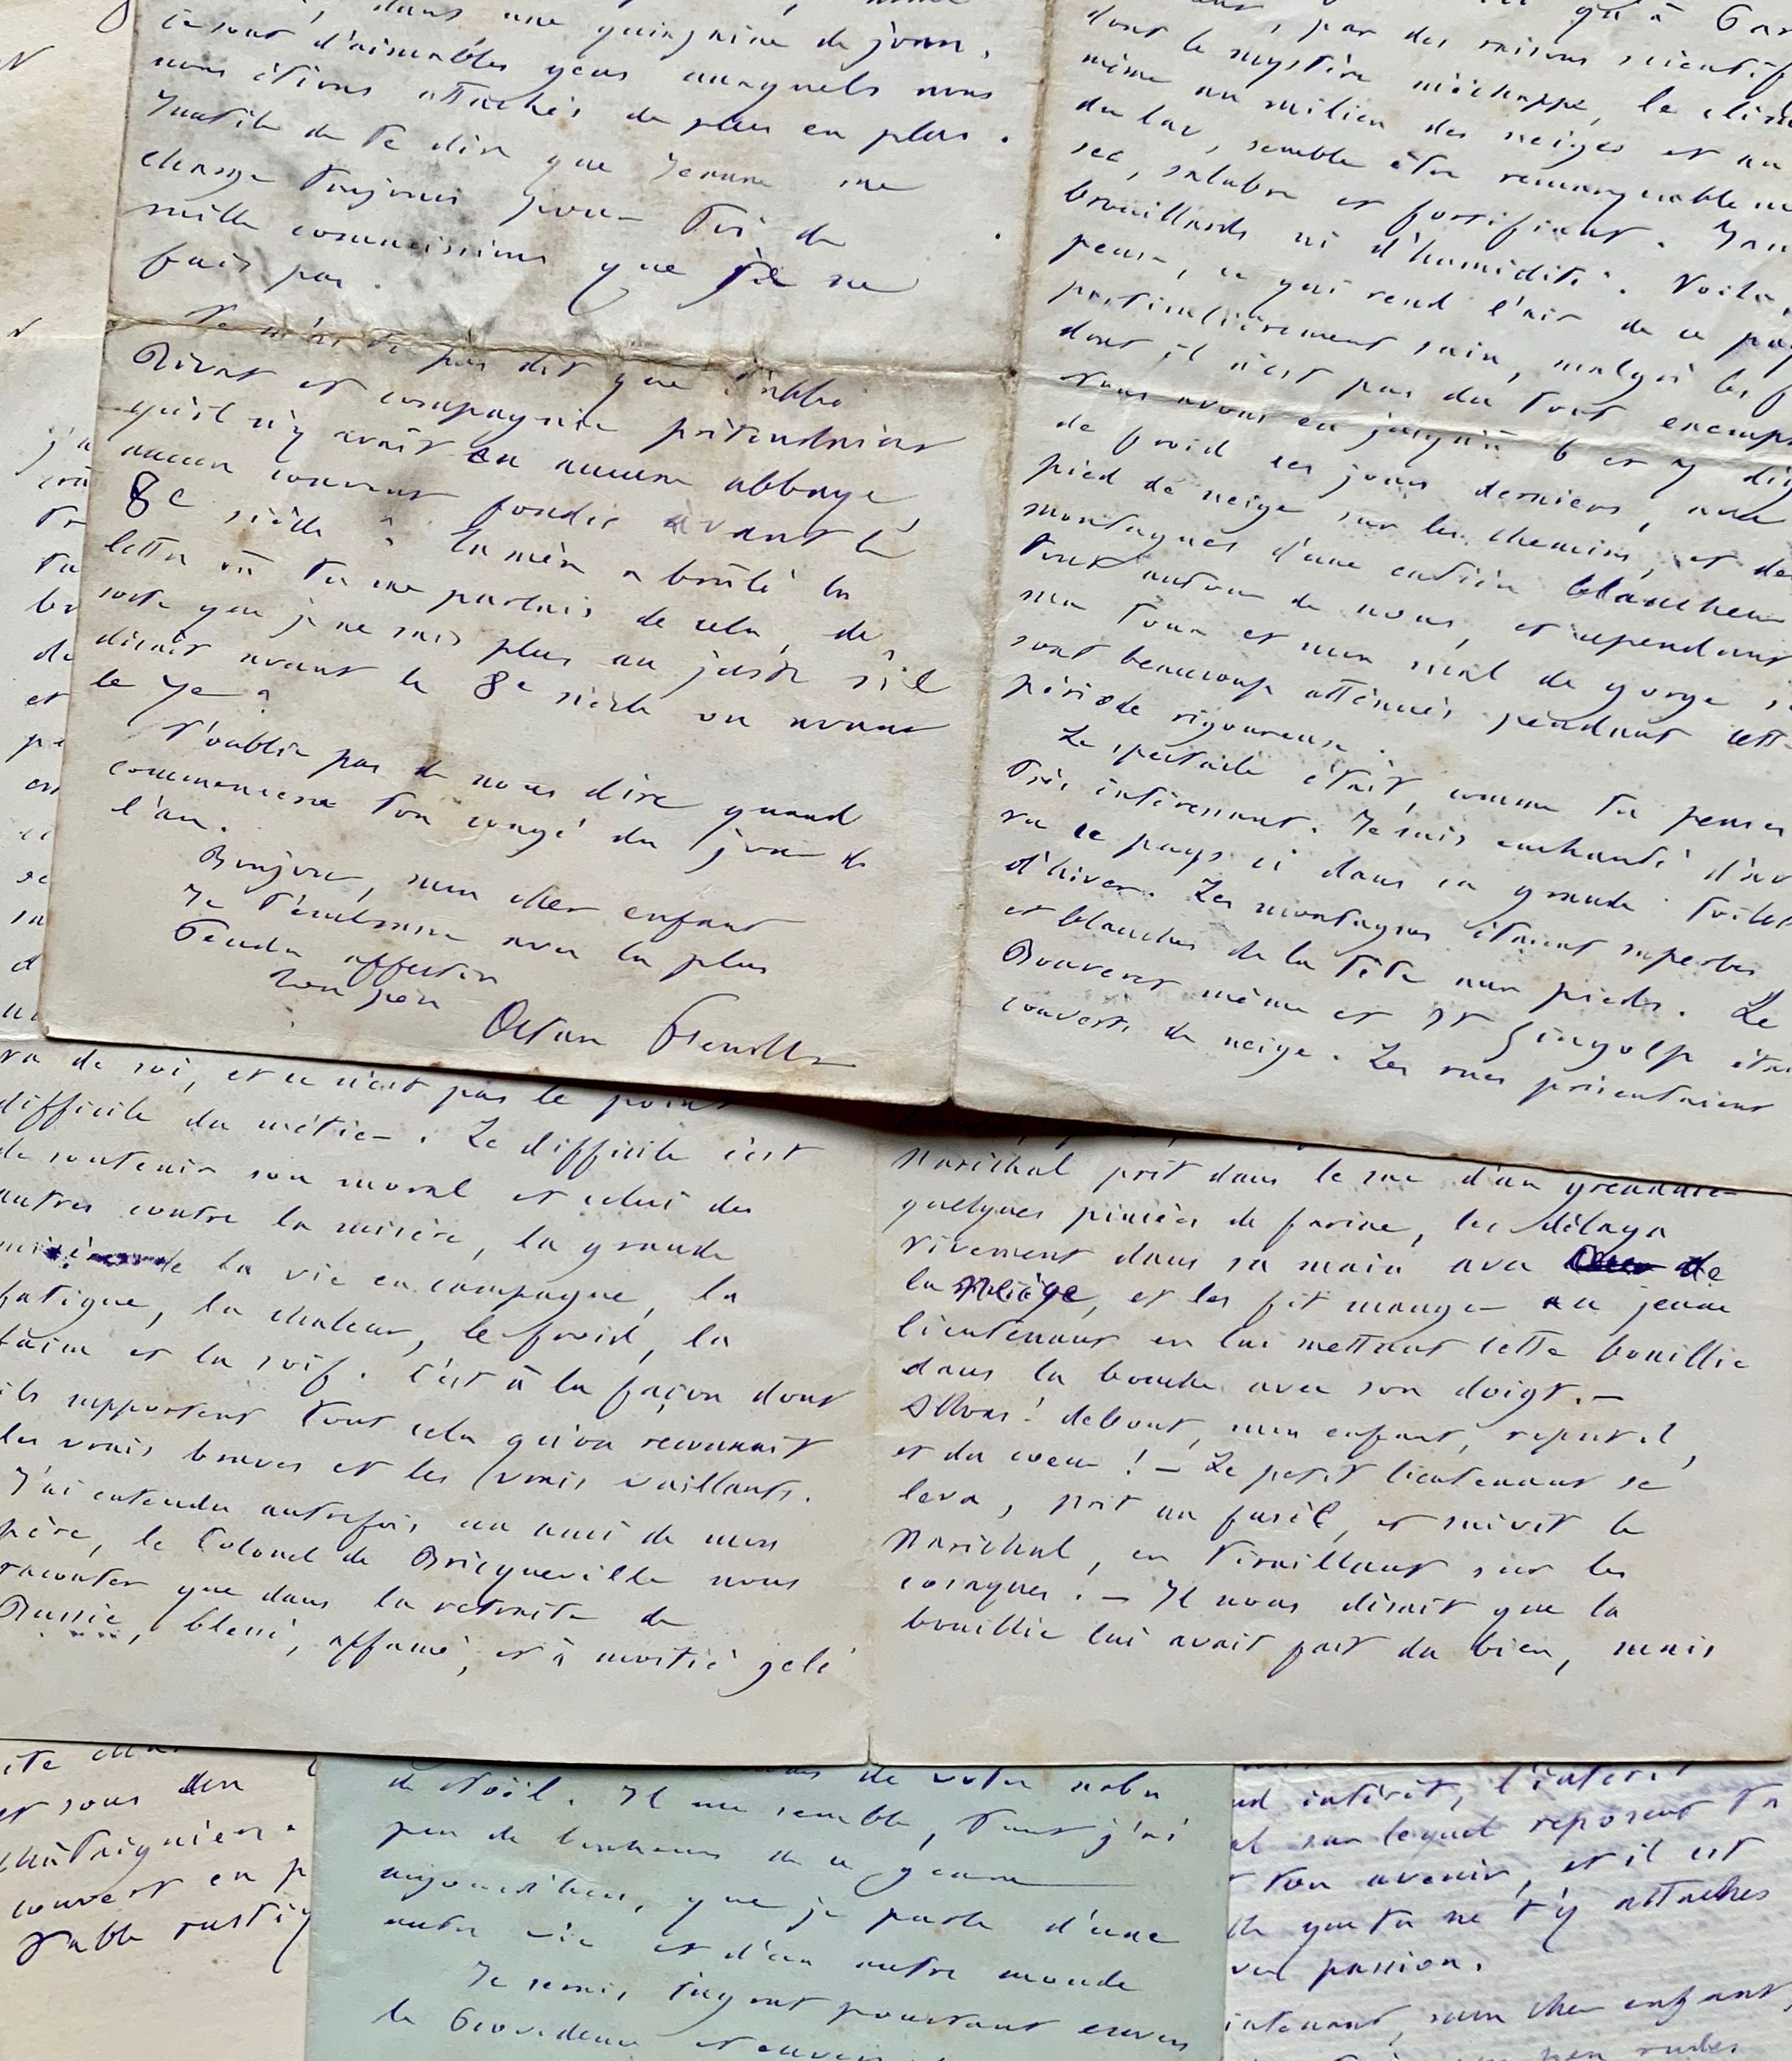 dans une quinzaine de jours,
ce sont d'aimables gens auxquels nous
nous étions attachés de plus en plus.
Inutile de te dire que Jeanne me
charge toujours pour toi de
mille commissions que je ne
fais pas.
Ne m'as tu pas dit que l'abbé
et compagnie prétendaient
qu'il n'y avait eu aucune abbaye,
aucun couvent fondé avant le
8e siècle? Ta mère a brûlé la
lettre où tu me parlais de cela, de
sorte que je ne sais plus au juste s'il
disait avant le 8e siècle ou avant
le 7e?
N'oublie pas de nous dire quand
commencera ton congé du jour de
l'an.
Bonjour, mon cher enfant
Je t'embrasse avec la plus
tendre affection
Ton père
Octave Feuillet
par des raisons scientif
dont le mystère m'échappe, le clim
même au milieu des neiges et au
du lac, semble être remarquablem
sec, salubre et fortifiant.
brouillards ni d'humidité. Voilà,
peur, ce qui rend l'air de ce pa
particulièrement sain, malgré les f
dont il n'est pas du tout exempt
nous avons eu jusqu'à 6 et 7 deg
de froid ces jours derniers, avec
pied de neige sur les chemins, et des
montagnes d'une entière blancheur
tout autour de nous, et cependant
ma toux et mon mal de gorge se
sont beaucoup atténués pendant cett
période rigoureuse.
Le spectacle était, comme tu penses
très intéressant. Je suis enchanté d'av
vu ce pays ci dans sa grande toilet
d'hiver. Les montagnes étaient superbes
et blanches de la tête aux pieds. Le
Bouveret même et St Gingolp étai
couverts de neige. Les rues présentaient
va de soi, et ce n'est pas le point
difficile du métier. Le difficile c'est
de soutenir son moral et celui des
autres contre la misère, la grande
misère de la vie en campagne, la
fatigue, la chaleur, le froid, la
faim et la soif. C'est à la façon dont
ils supportent tout cela qu'on reconnait
les vrais braves et les vrais vaillants.
J'ai entendu autrefois un ami de mon
père, le Colonel de Bricqueville nous
raconter que dans la retraite de
Russie, blessé, affamé, et à moitié gelé
Maréchal prit dans le sac d'un grenadier
quelques pincées de farine, les délaya
vivement dans sa main avec de
la neige, et les fit manger au jeune
lieutenant en lui mettant cette bouillie
dans la bouche avec son doigt. —
Allons! debout, mon enfant, reprit-il,
et du coeur! — Le petit lieutenant se
leva, prit un fusil, et suivit le
Maréchal, en tiraillant sur les
cosaques. — Il nous disait que la
bouillie lui avait fait du bien, mais
et sous des
châtaigniers.
couvert en p
table rustiq
de votre
de Noël. Il me semble, tant j'ai
peu de bonheurs de ce genre
aujourd'hui, que je parle d'une
autre vie et d'un autre monde
Je serais ingrat pourtant envers
la Providence et envers
intérêt, l'intérêt
sur lequel reposent ta
ton avenir, et il est
que tu ne t'y attaches
passion.
intenant, mon cher enfant,
un peu rudes